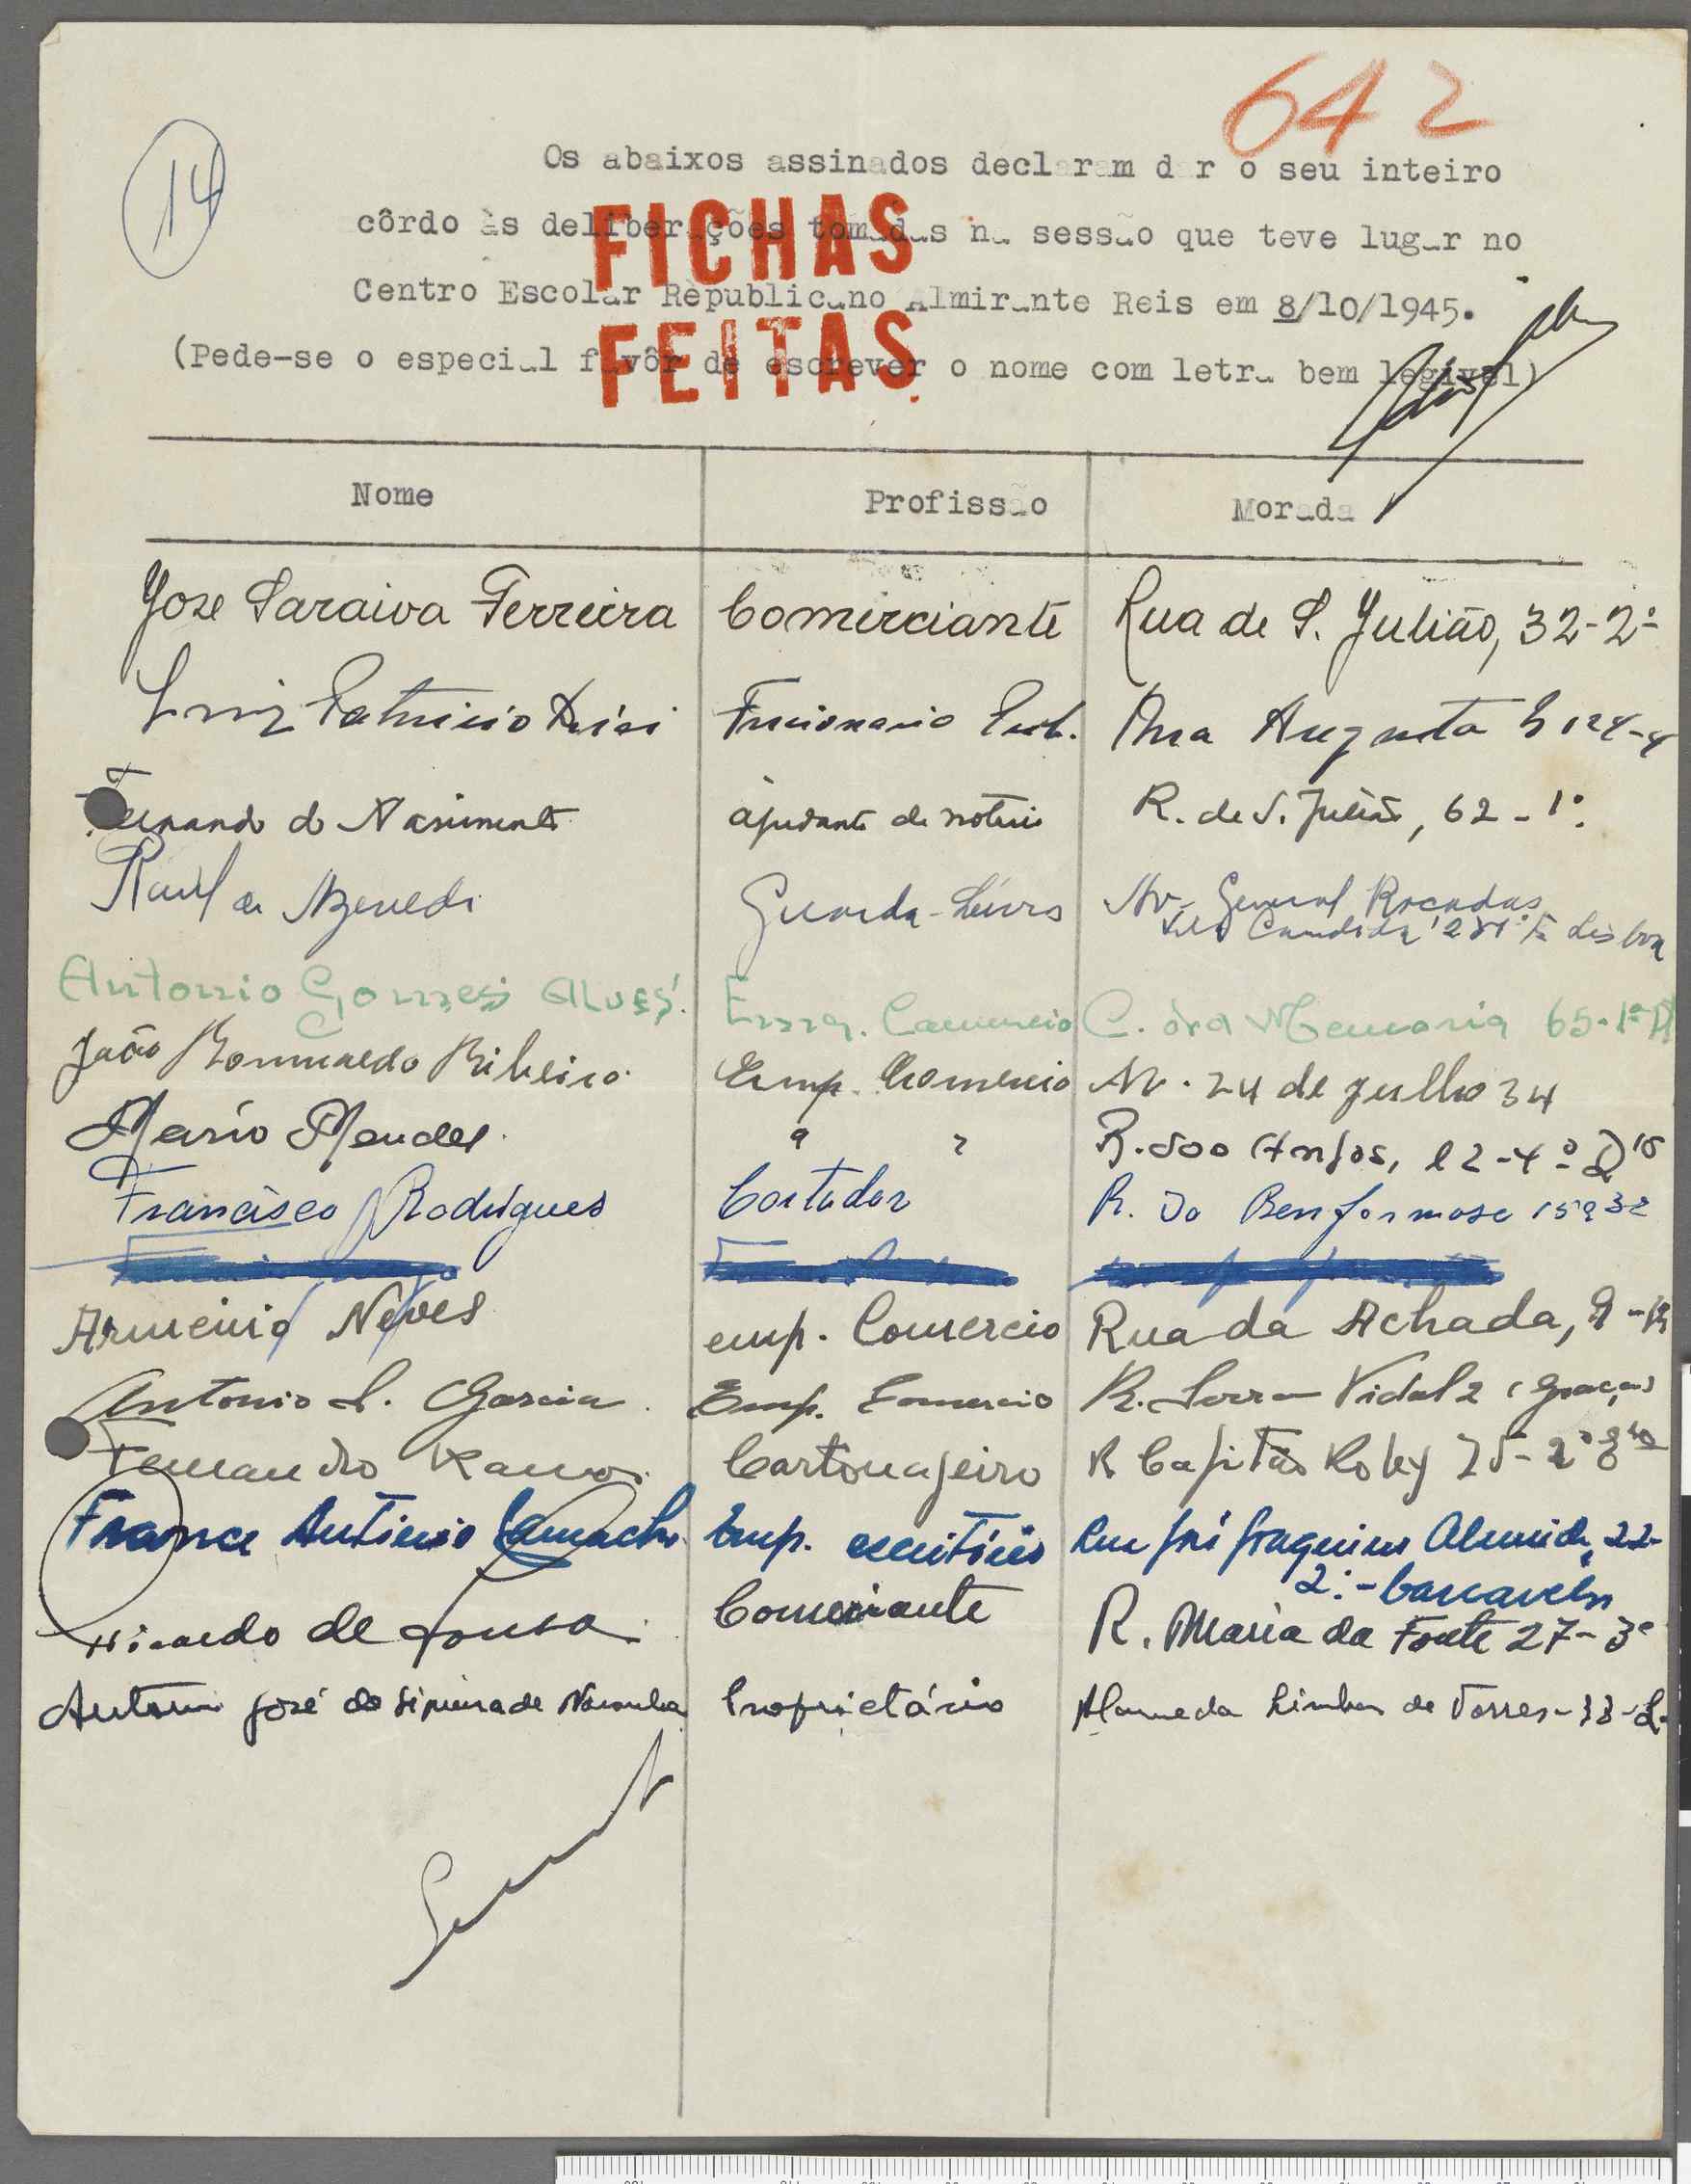 642
14
Os abaixos assinados declaram dar o seu inteiro
côrdo às deliberações tomadas na sessão que teve lugar no
Centro Escolar Republicano Almirante Reis em 8/10/1945.
(Pede-se o especial favôr de escrever o nome com letra bem legivel)
FICHAS
FEITAS
Nome Profissão Morada
Jose Saraiva Ferreira Comerciante Rua de S. Julião, 32-2º
Luiz Patricio Funcionario Pub. Rua Augusta
Fernando do Nascimento ajudante de notario R. de S. Julião, 62-1º
Raul de Azevedo Guarda-Livros Av. General Roçadas
Candida Lisboa
Antonio Gomes Alves Emp. Comercio C. da Memoria 65-1º
João Romualdo Ribeiro Emp. Comercio Av. 24 de Julho 34
Mario Mendes " " R. dos Anjos, 12-4º Dto
Francisco Rodrigues Cortador R. do Benformoso 152
Armenio Neves emp. Comercio Rua da Achada, 9
Antonio S. Garcia Emp. Comercio R. Serra Vidal 2 (Graça)
Fernando Ramos Cartonajeiro R Capitão Roby 25-2º
França António Camacho Emp. escritório Rua José Joaquim Almeida, 22-
2º-Carcavelos
Ricardo de Sousa Comerciante R. Maria da Fonte 27-3º
António José de Siqueira de Noronha Proprietário Alameda Linhas de Torres-33